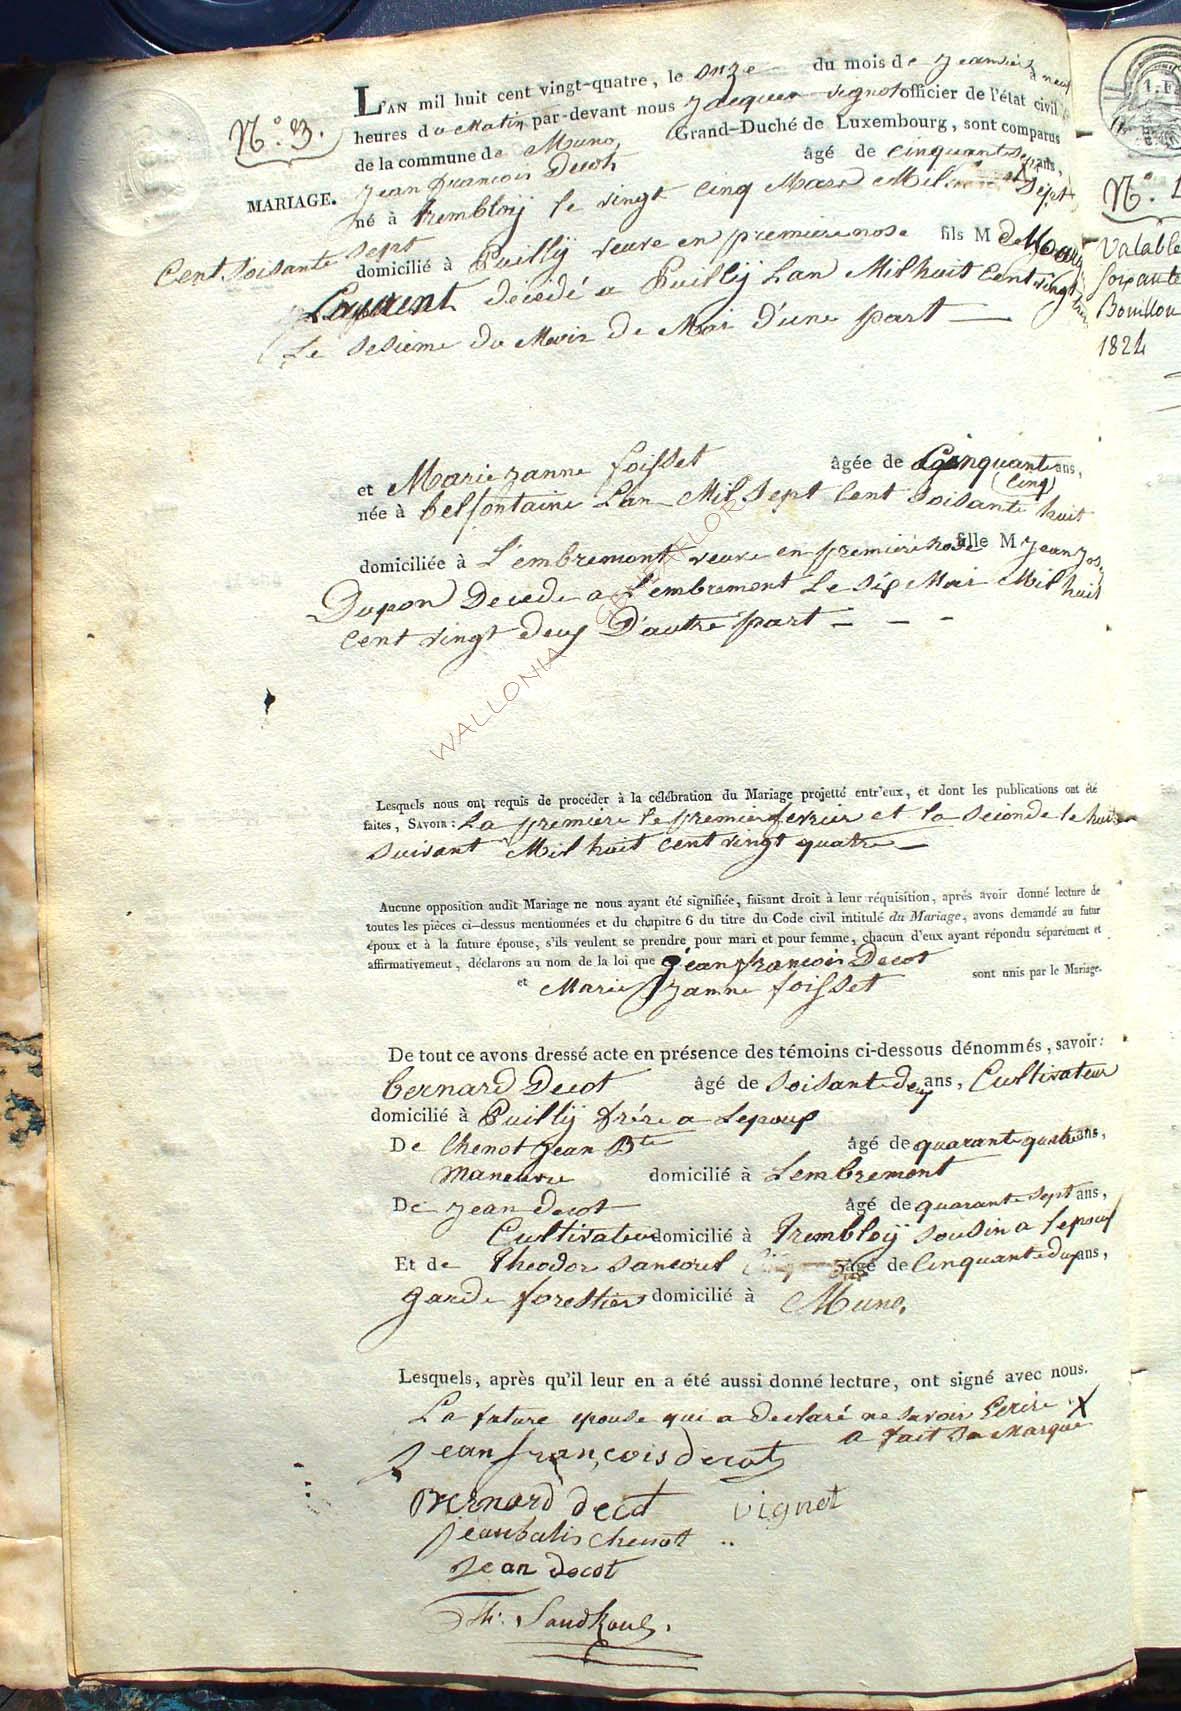 L'AN mil huit cent vingt-quatre, le onze du mois de à neuf
heures du Matin par-devant nous Jacques vignot officier de l'état civil
N.º 3.
de la commune de Muno, Grand-Duché de Luxembourg, sont comparus
Jean francois Decot âgé de cinquante sept ans,
MARIAGE.
né à trembloÿ le vingt cinq Mars Mil Sept
Cent Soisante sept
domicilié à Puillÿ veuve en premiere nose fils M de
Layaent decedé a Puillÿ Lan Mil huit Cent vingt
Le sesieme du Mois de Mai d'une part —
et Marie zanne foisset âgée de Cinquante ans,
(Cinq)
née à belfontaine Lan Mil Sept Cent Soisante huit
domiciliée à Lembremont veuve en premiere nose fille M Jean Jos
Dupon Decede a Lembremont Le Six Mai Mil huit
Cent vingt deux D'autre part — — -
WALLONIA
Lesquels nous ont requis de procéder à la célébration du Mariage projetté entr'eux, et dont les publications ont été
faites, SAVOIR : La premiere le premier fevrier et la seconde le huit
suivant Mil huit cent vingt quatre —
Aucune opposition audit Mariage ne nous ayant été signifiée, faisant droit à leur réquisition, après avoir donné lecture de
toutes les pièces ci-dessus mentionnées et du chapitre 6 du titre du Code civil intitulé du Mariage, avons demandé au futur
époux et à la future épouse, s'ils veulent se prendre pour mari et pour femme, chacun d'eux ayant répondu séparément et
affirmativement, déclarons au nom de la loi que Jean francois Decot
et Marie zanne foisset sont unis par le Mariage.
De tout ce avons dressé acte en présence des témoins ci-dessous dénommés, savoir :
bernard Decot âgé de soisante deux ans, Cultivateur
domicilié à Puillÿ frére a Lepoux
De Chenot Jean Bte âgé de quarante quatre ans,
maneuvre domicilié à Lembremont
De Jean decot âgé de quarante sept ans,
Cultivateur domicilié à trembloÿ Cousin a Lepoux
Et de theodor âgé de Cinquante deux ans,
garde forestier domicilié à Muno,
Lesquels, après qu'il leur en a été aussi donné lecture, ont signé avec nous.
La future epouse qui a declaré ne savoir Ecrire X
a fait sa Marque
jean françois decot
Bernard decot vignot
jean chenot ..
Jean decot
Th.
N.º
valable
soixante
Bouillon
1824